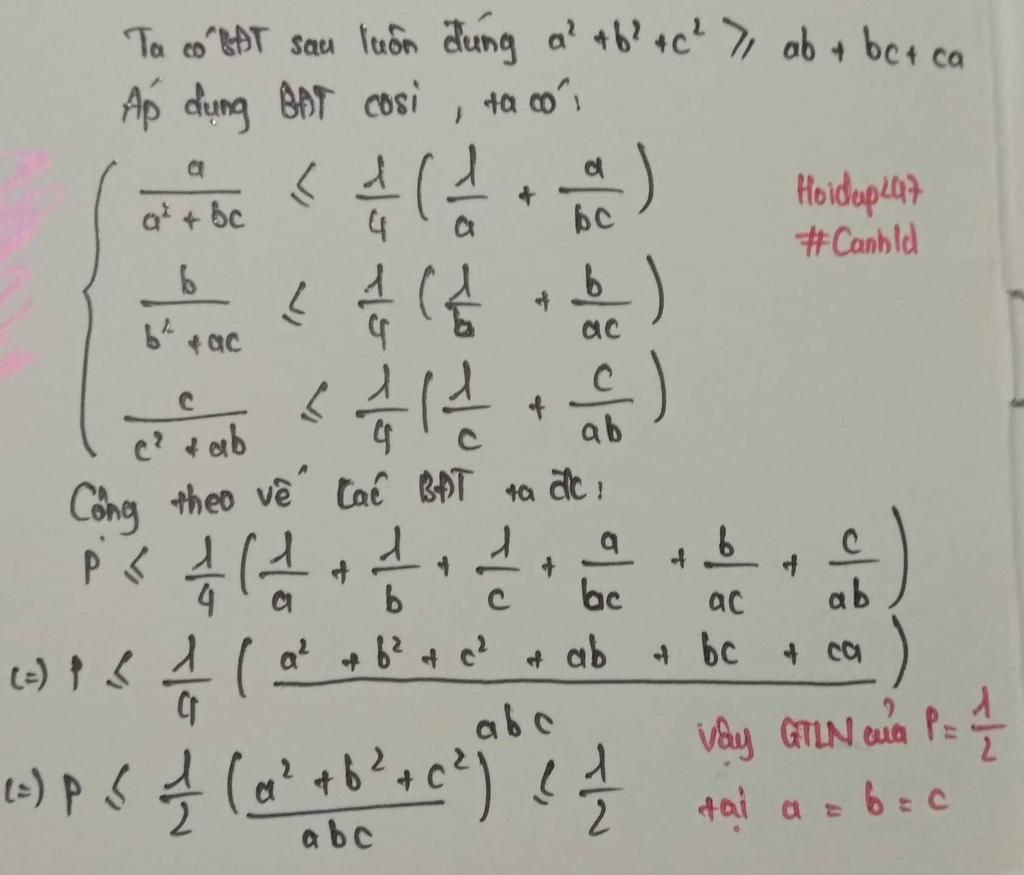 Ta có BĐT sau luôn đúng a² + b² + c² ⩾ ab + bc + ca
Áp dụng BĐT cosi , ta có:
a/(a² + bc) ≤ 1/4 (1/a + a/bc)
Hoidap247
#Canhld
b/(b² + ac) ≤ 1/4 (1/b + b/ac)
c/(c² + ab) ≤ 1/4 (1/c + c/ab)
Cộng theo vế các BĐT ta đc:
P ≤ 1/4 (1/a + 1/b + 1/c + a/bc + b/ac + c/ab)
(=) P ≤ 1/4 ((a² + b² + c² + ab + bc + ca)/abc)
(=) P ≤ 1/2 ((a² + b² + c²)/abc) ≤ 1/2
Vậy GTLN của P = 1/2
tại a = b = c